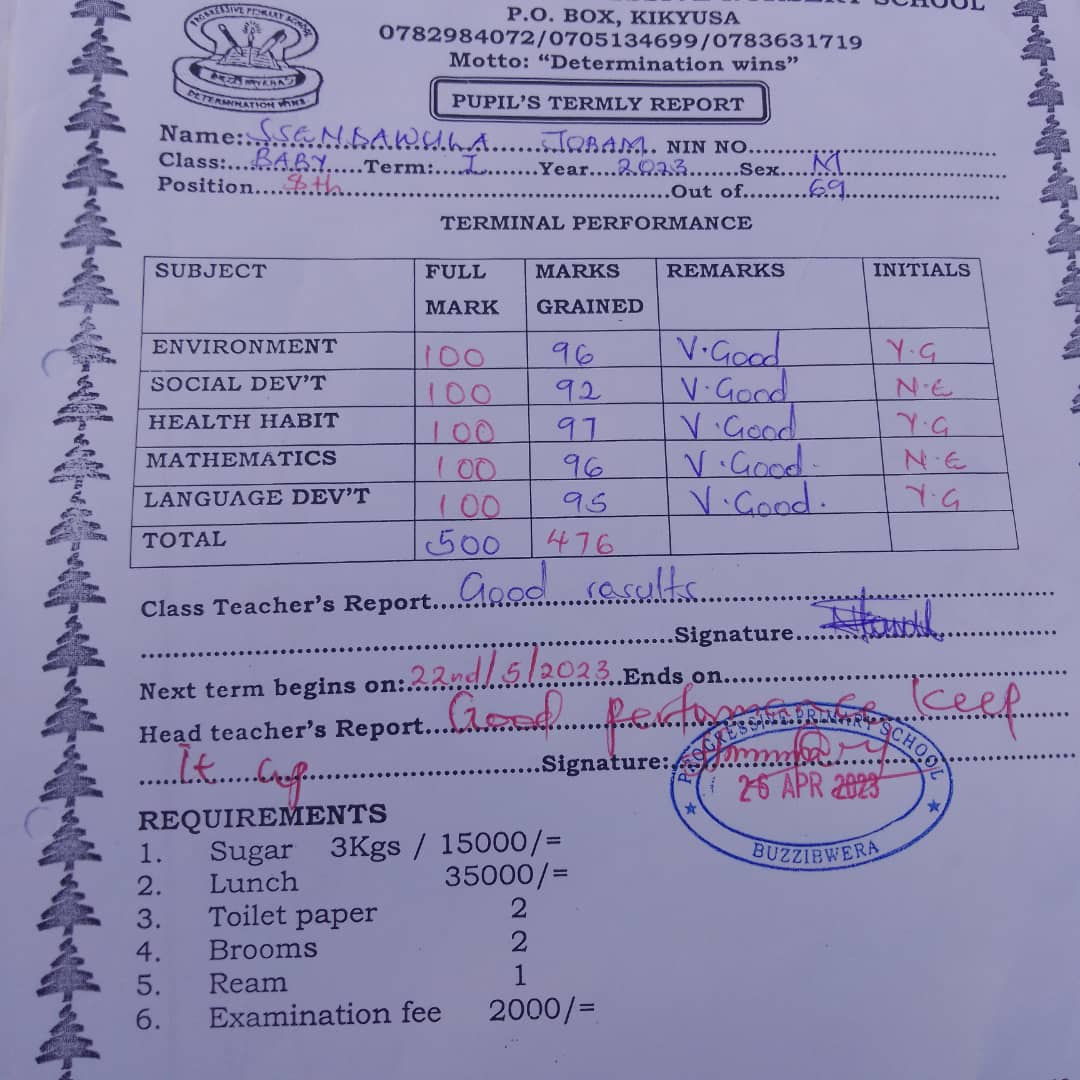 SCHOOL
P.O. BOX, KIKYUSA
0782984072/0705134699/0783631719
Motto: "Determination wins"
PROGRESSIVE PRIMARY SCHOOL
DETERMINATION WINS
PUPIL'S TERMLY REPORT
Name: SSENDAWULA JOBAM. NIN NO.
Class: BABY Term: I Year 2023 Sex M
Position 8th Out of 69
TERMINAL PERFORMANCE
SUBJECT FULL MARK MARKS GRAINED REMARKS INITIALS
ENVIRONMENT 100 96 V.Good Y.G
SOCIAL DEV'T 100 92 V.Good N.E
HEALTH HABIT 100 97 V.Good Y.G
MATHEMATICS 100 96 V.Good. N.E
LANGUAGE DEV'T 100 95 V.Good. Y.G
TOTAL 500 476
Class Teacher's Report Good rasults
Signature
Next term begins on: 22nd/5/2023 Ends on
Head teacher's Report Good perfomance keep
It up Signature:
PROGRESSIVE PRIMARY SCHOOL
26 APR 2023
BUZZIBWERA
REQUIREMENTS
1. Sugar 3Kgs / 15000/=
2. Lunch 35000/=
3. Toilet paper 2
4. Brooms 2
5. Ream 1
6. Examination fee 2000/=